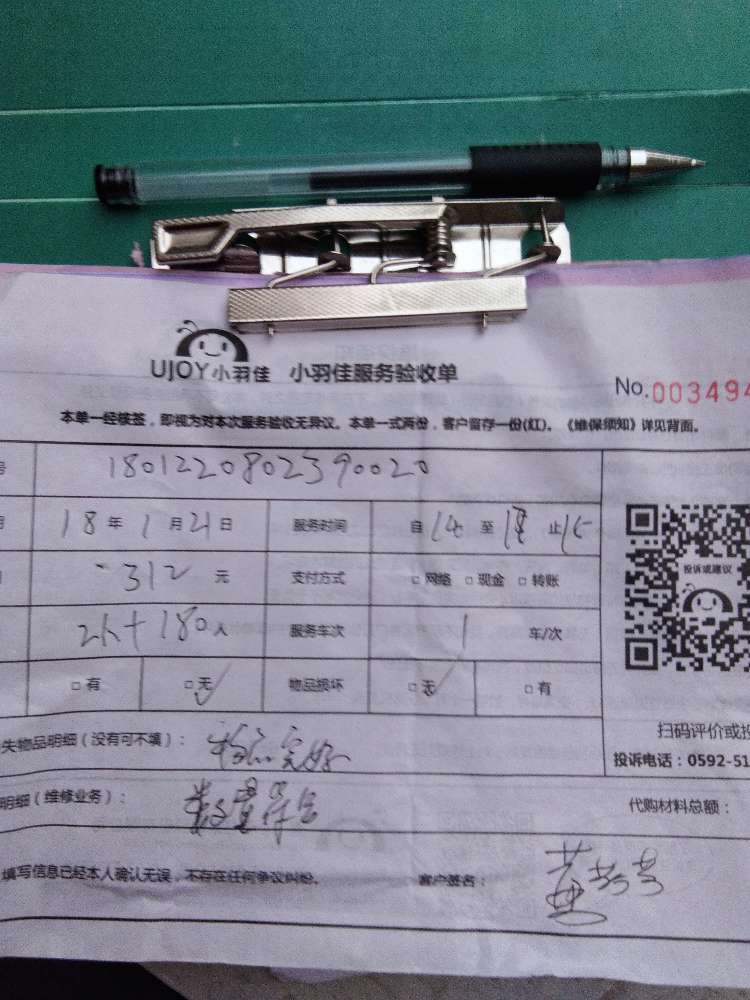 UJOY小羽佳 小羽佳服务验收单
No.003494
本单一经核签，即视为对本次服务验收无异议。本单一式两份，客户留存一份(红)。《维保须知》详见背面。
号 1801220802390020
期 18年1月21日 服务时间 自14至18止
312元 支付方式 □网络 □现金 □转账
投诉或建议
2人+180人 服务车次 1 车/次
□有 □无 物品损坏 □无 □有
失物品明细（没有可不填）： 物品完好
扫码评价或投
投诉电话：0592-51
明细（维修业务）： 数量符合
代购材料总额：
填写信息已经本人确认无误，不存在任何争议纠纷。 客户签名：